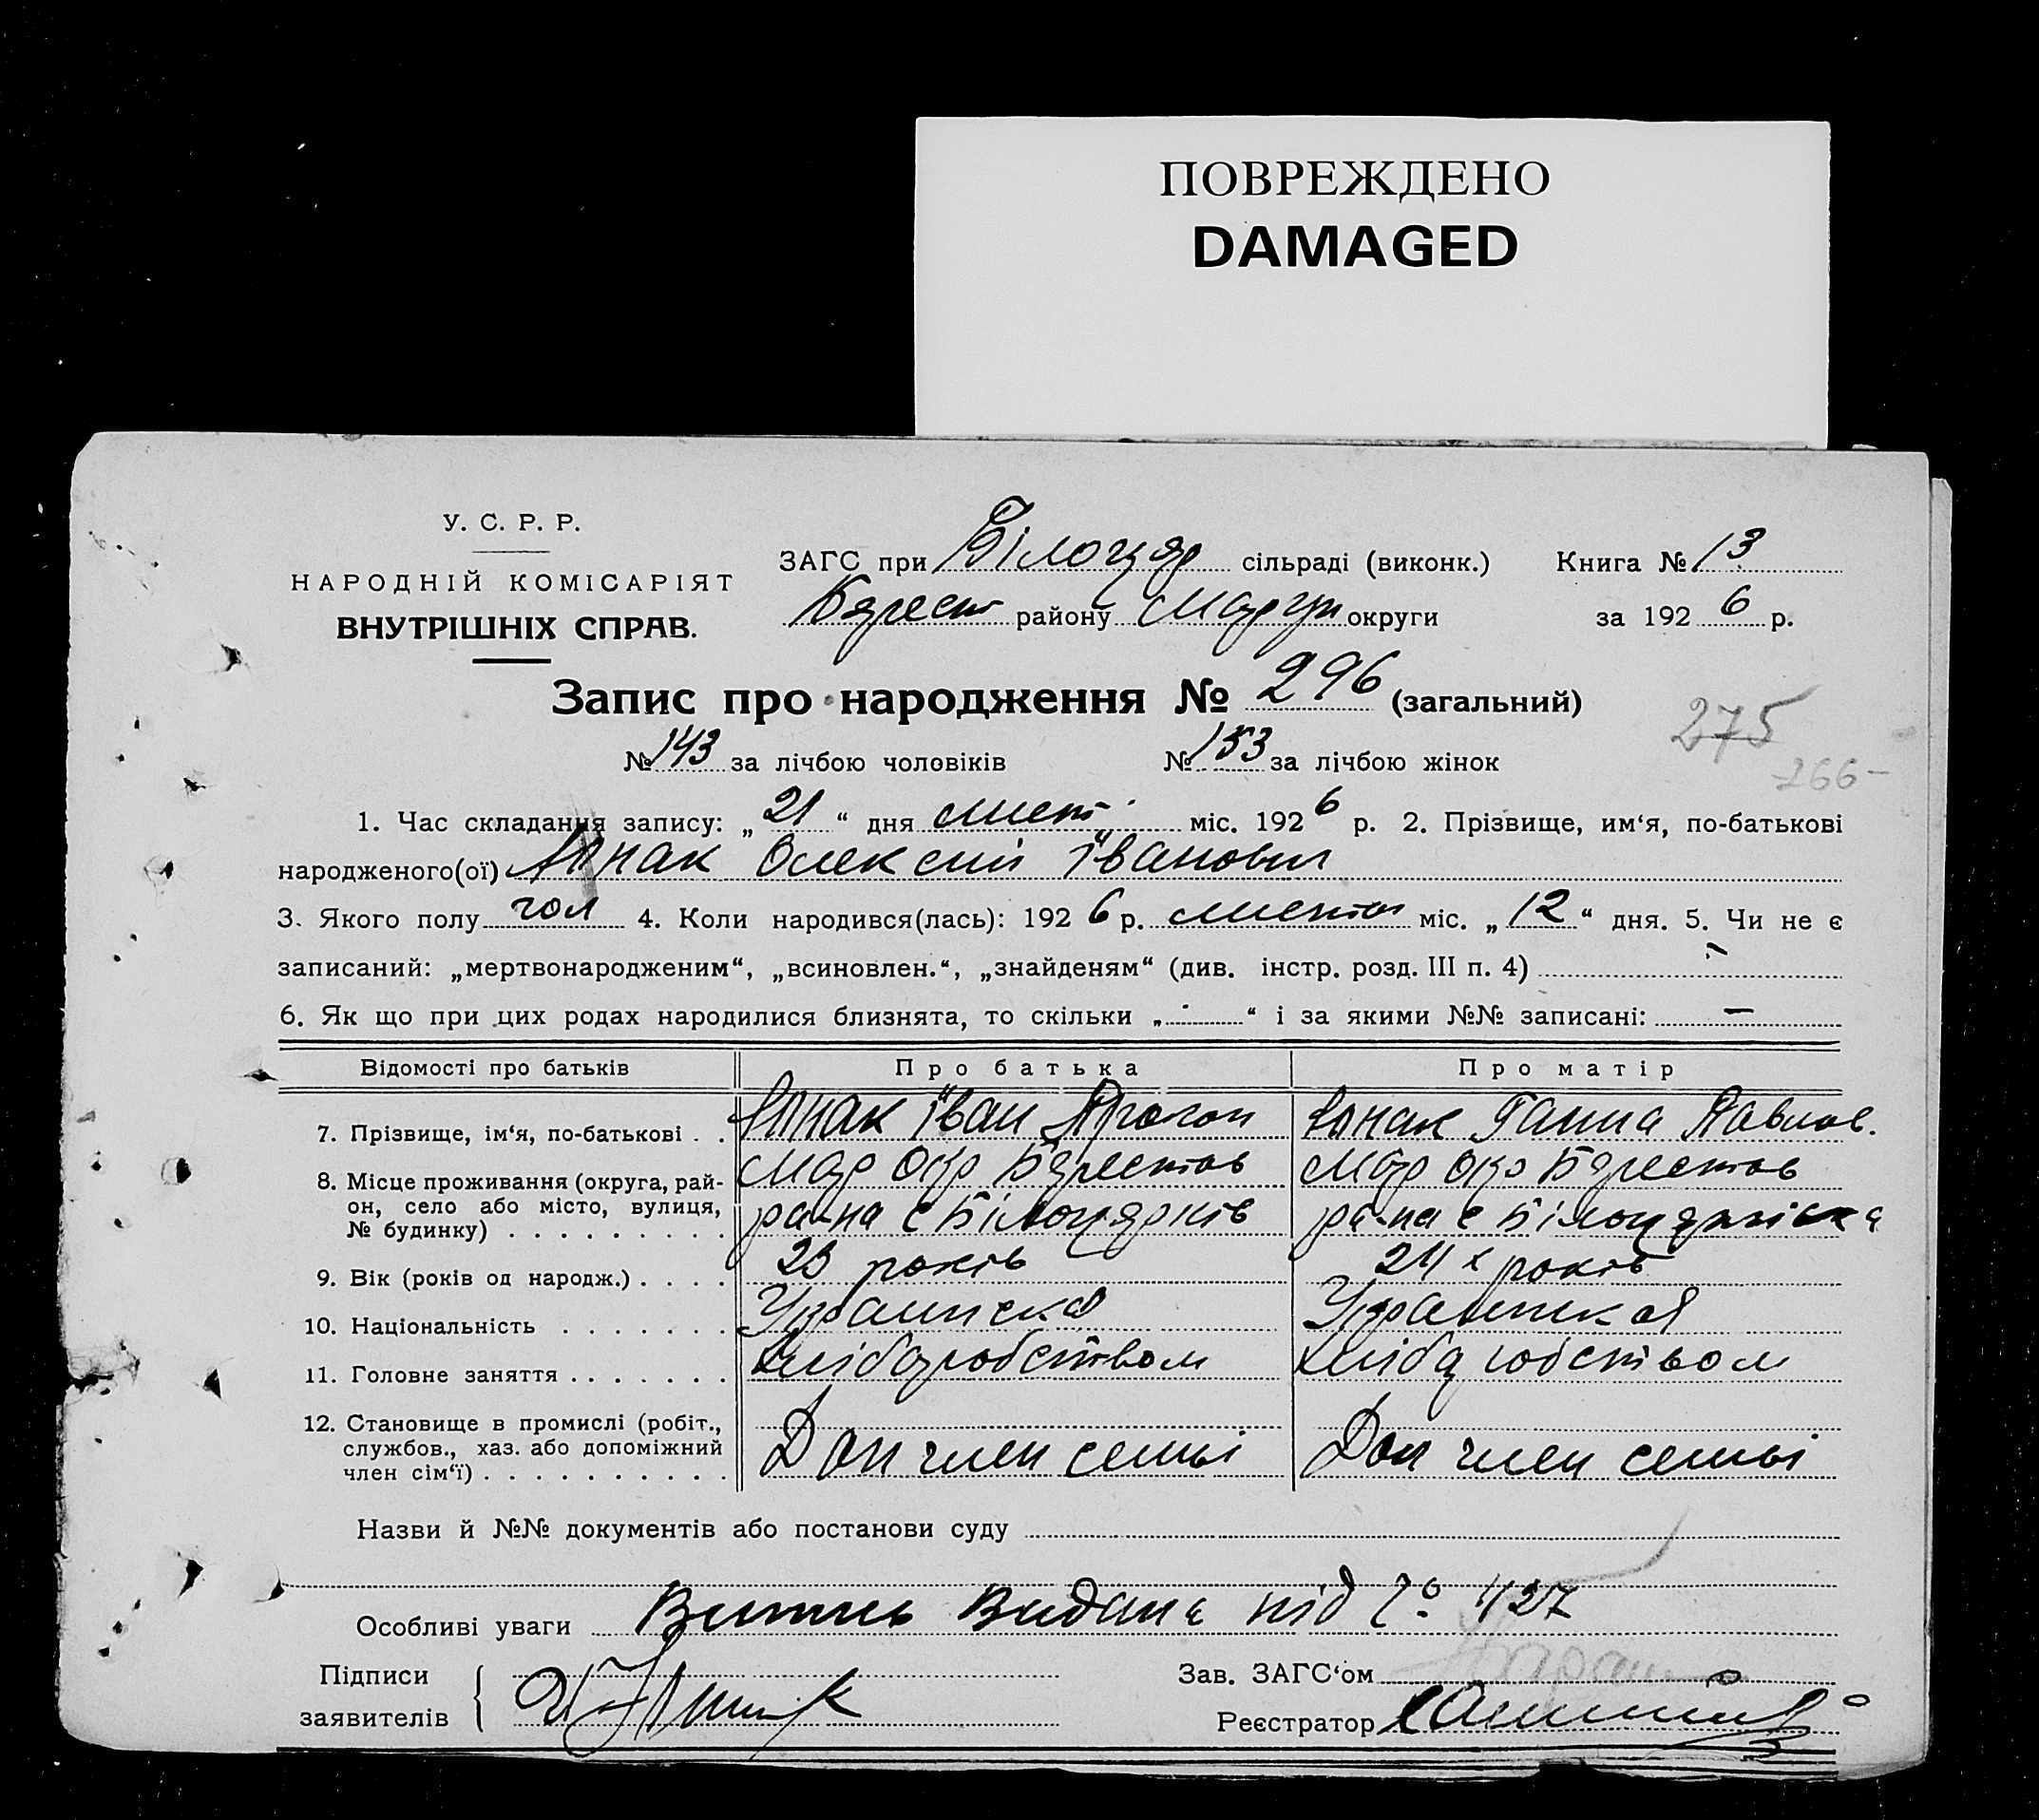 ПОВРЕЖДЕНО
DAMAGED
У. С. Р. Р.
НАРОДНІЙ КОМІСАРІЯТ
ВНУТРІШНІХ СПРАВ.
ЗАГС при Білоцер сільраді (виконк.) Книга № 13
району округи за 1926 р.
Запис про народження № 296 (загальний)
275
№ 143 за лічбою чоловіків № 153 за лічбою жінок
-266-
1. Час складання запису: „21“ дня лист міс. 1926 р. 2. Прізвище, им‘я, по-батькові
народженого(ої) Юнак Олексій Іванович
3. Якого полу чол 4. Коли народився(лась): 1926 р. листоп міс. „12“ дня. 5. Чи не є
записаний: „мертвонародженим“, „всиновлен.“, „знайденям“ (див. інстр. розд. III п. 4)
6. Як що при цих родах народилися близнята, то скільки „-“ і за якими №№ записані: —
Відомості про батьків Про батька Про матір
7. Прізвище, ім‘я, по-батькові . . Юнак Іван Юнак Ганна Павлов.
8. Місце проживання (округа, рай-
он, село або місто, вулиця,
№ будинку) . . . . . . . . .
Мар Окр Мар Окр
ра-на с ра-на с
9. Вік (років од народж.) . . . . 23 років 24 х років
10. Національність . . . . . . .
11. Головне заняття . . . . . . . Хліборобством Хліборобством
12. Становище в промислі (робіт.,
службов., хаз. або допоміжний
член сім‘ї) . . . . . . . . . . Доп член семьі Доп член семьі
Назви й №№ документів або постанови суду
Особливі уваги Витяг Видана під № 427
Підписи
заявителів
Зав. ЗАГС‘ом
Реєстратор